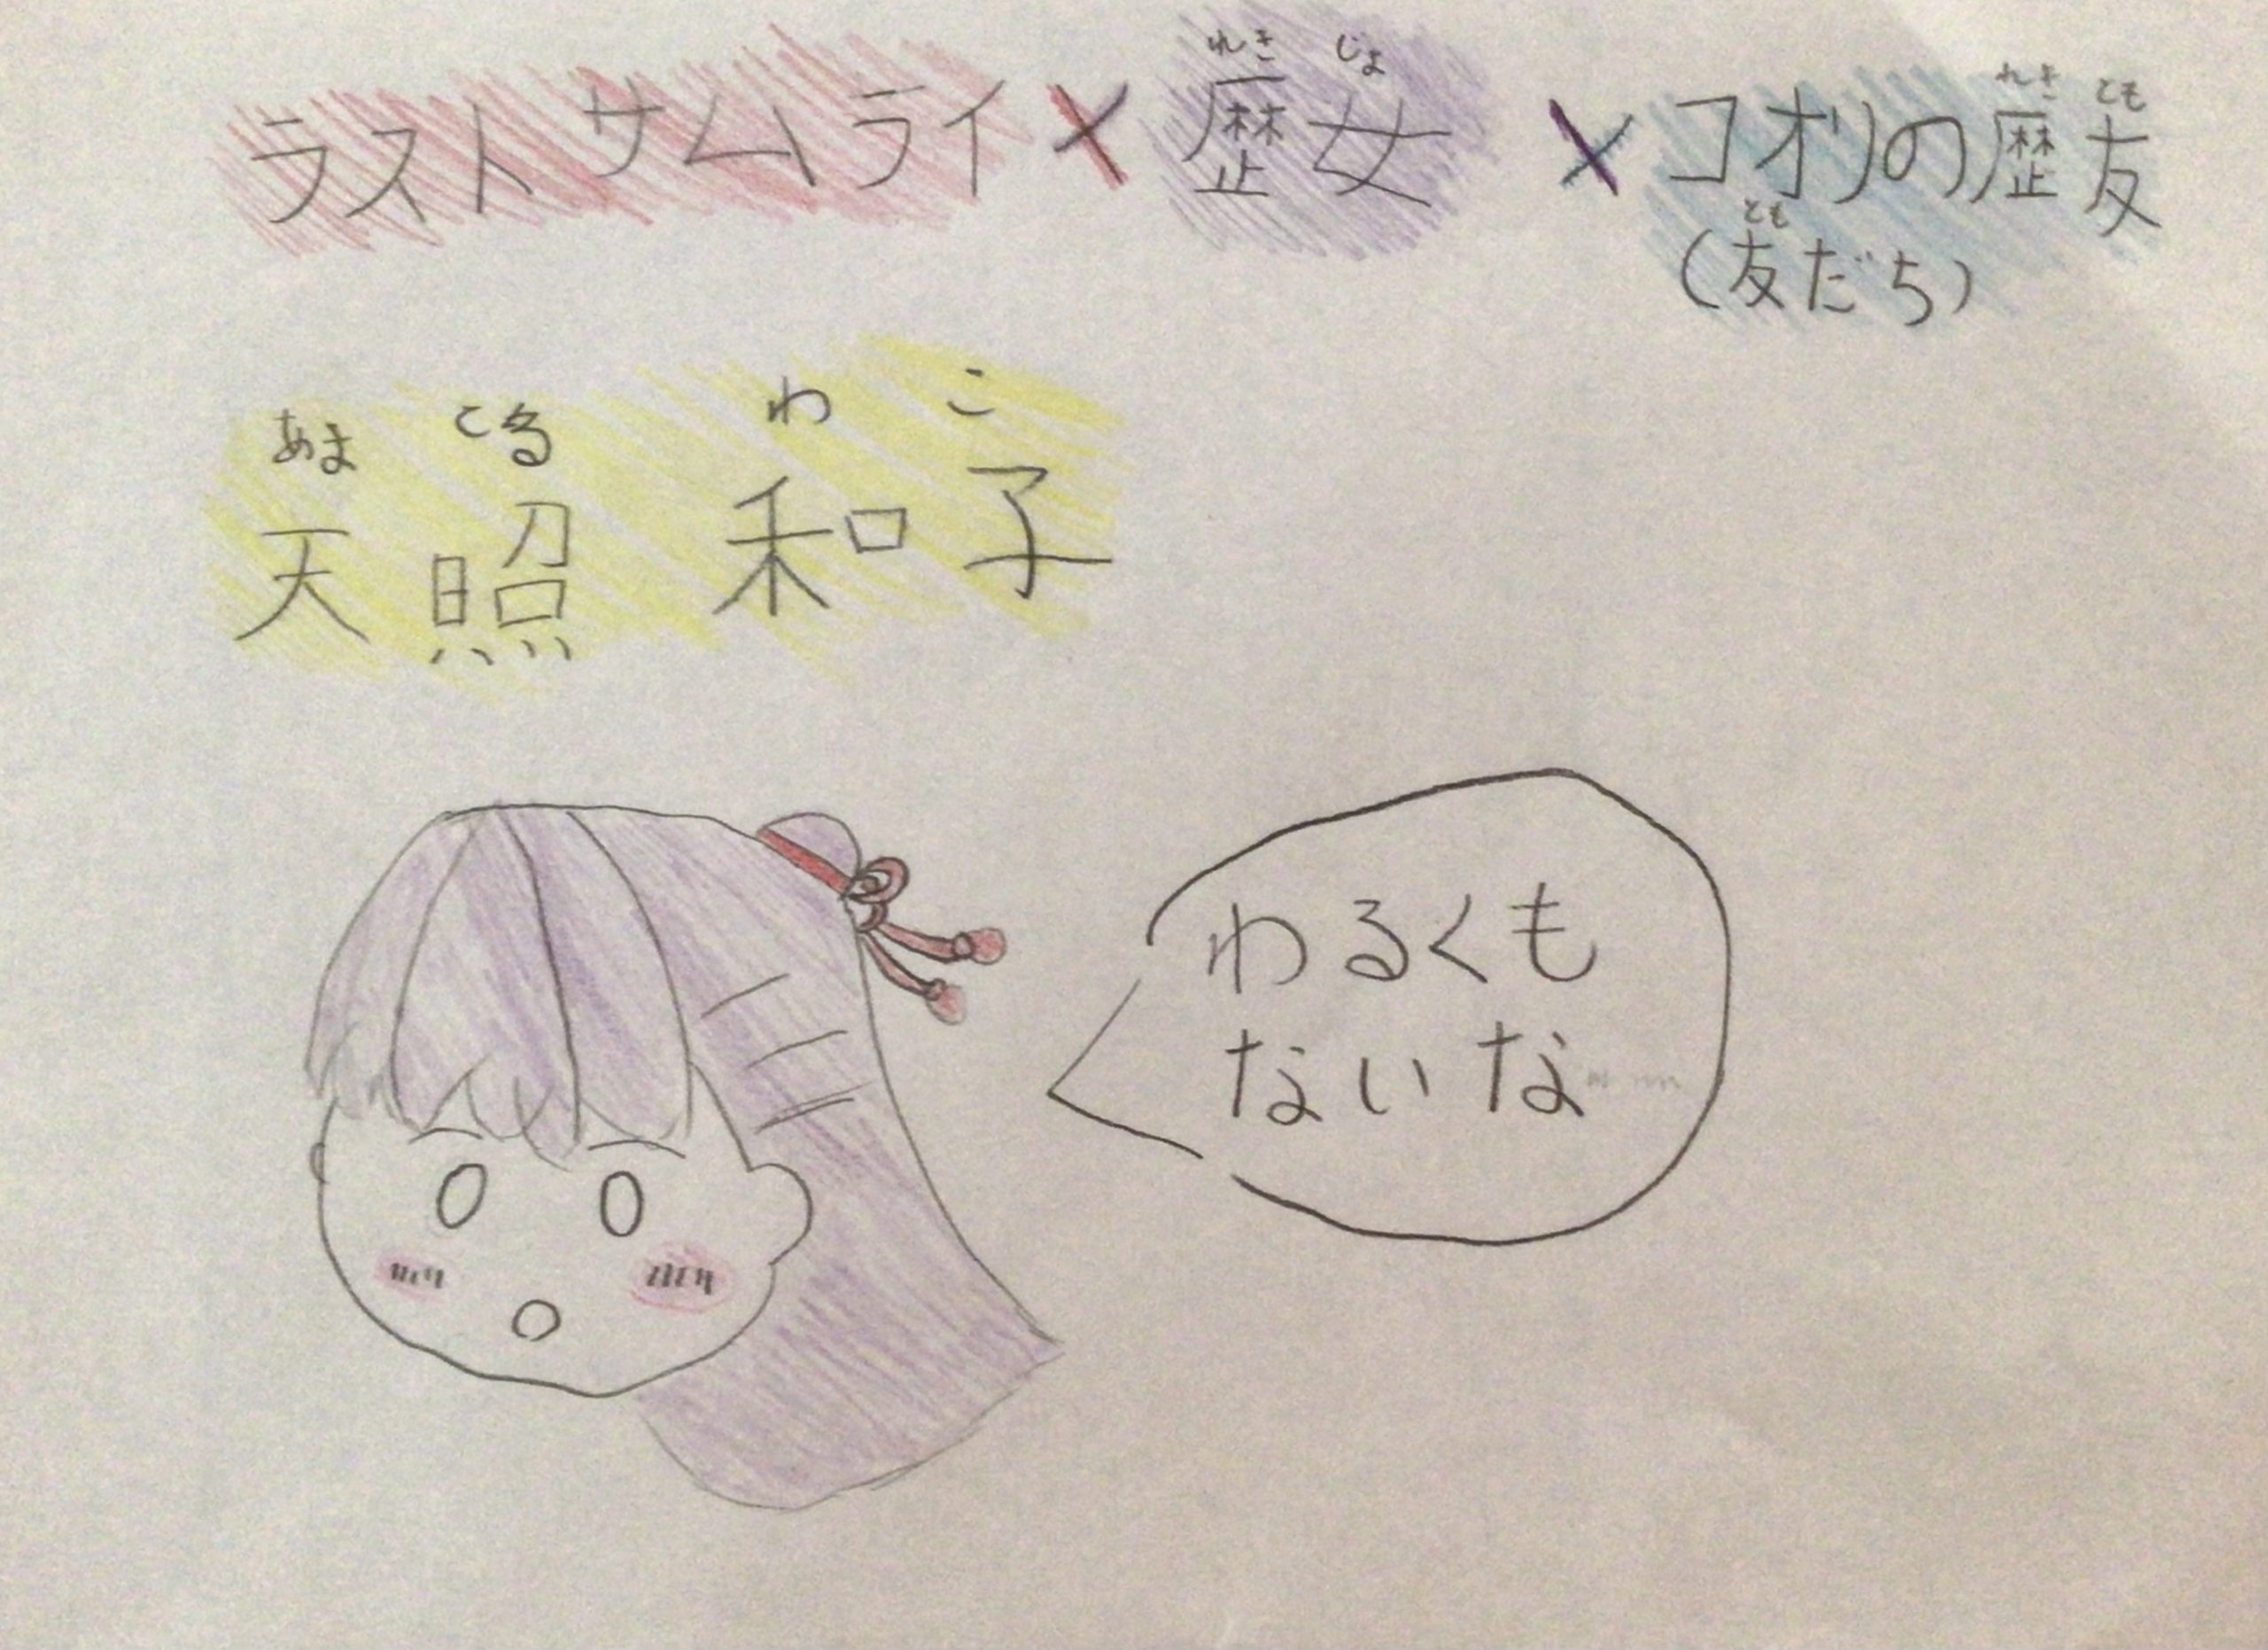 ラストサムライ×歴女×コオリの歴友
れきじょ
れきとも
(友だち)
とも
あまてる わこ
天照 和子
わるくも
ないな